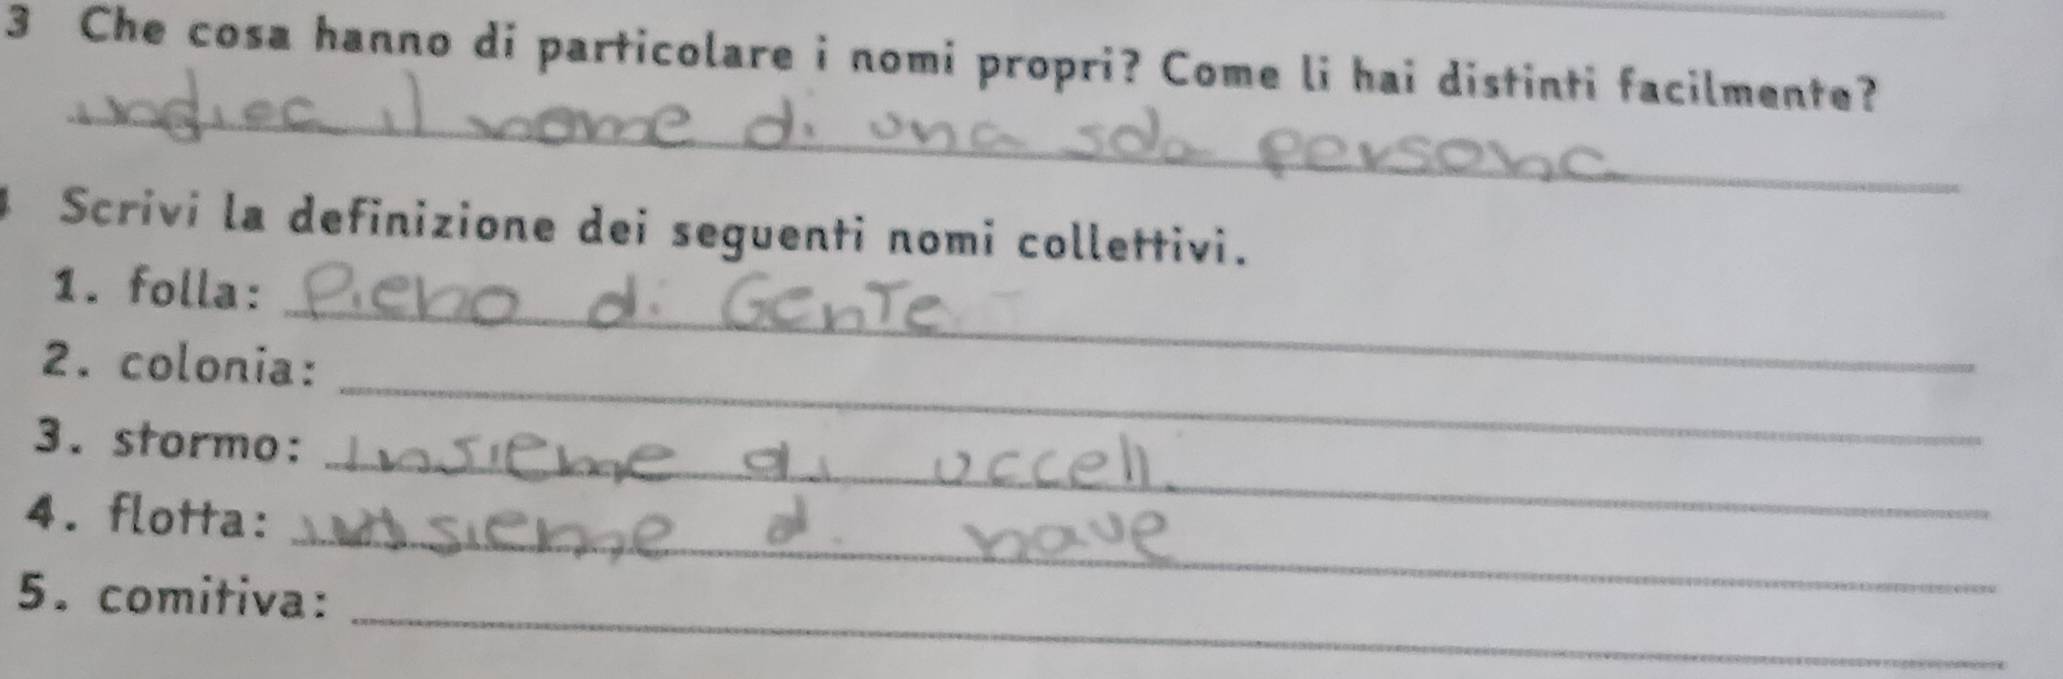 3 Che cosa hanno di particolare i nomi propri? Come li hai distinti facilmente?
indica il nome di una sola persona
Scrivi la definizione dei seguenti nomi collettivi.
1. folla: Pieno di GenTe
2. colonia:
3. stormo: Insieme di uccelli
4. flotta: insieme di nave
5. comitiva: